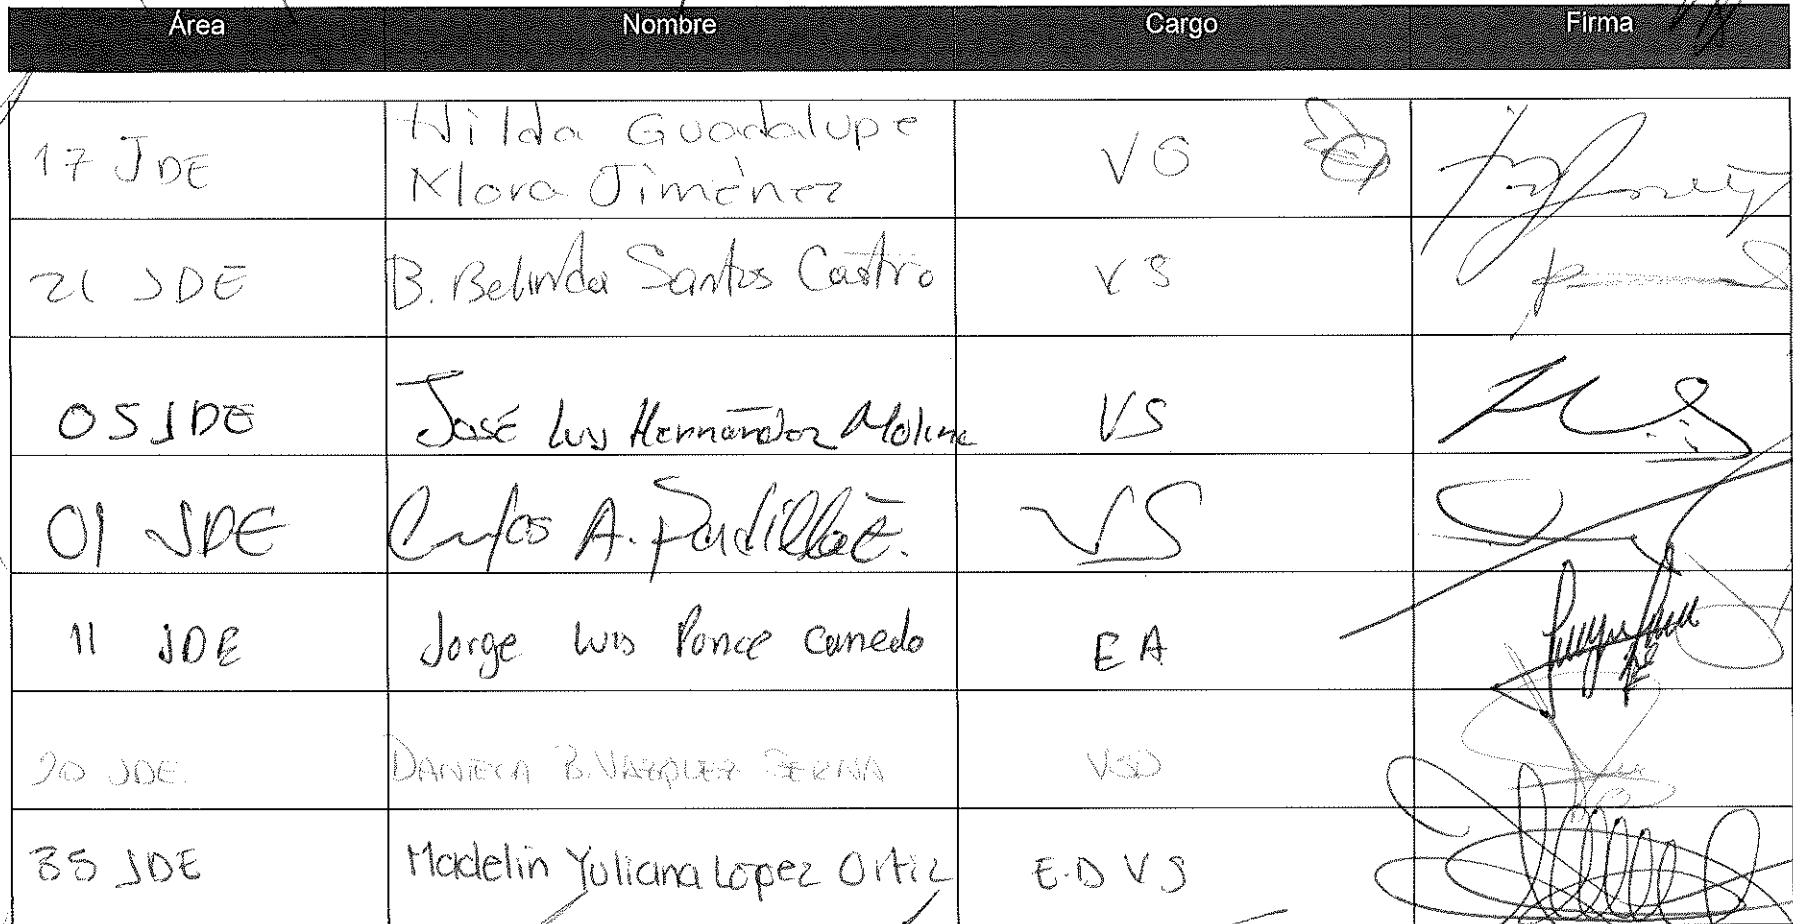 Área Nombre Cargo Firma
17 JDE Hilda Guadalupe VS
Mora Jiménez
21 JDE B. Belinda Santos Castro VS
05 JDE José Luis Hernández Molina VS
01 JDE Carlos A. Padilla E. VS
11 JDE Jorge Luis Ponce Canedo EA
JDE DANIELA B. VAZQUEZ SERNA
35 JDE Madelin Yuliana López Ortiz E.D VS